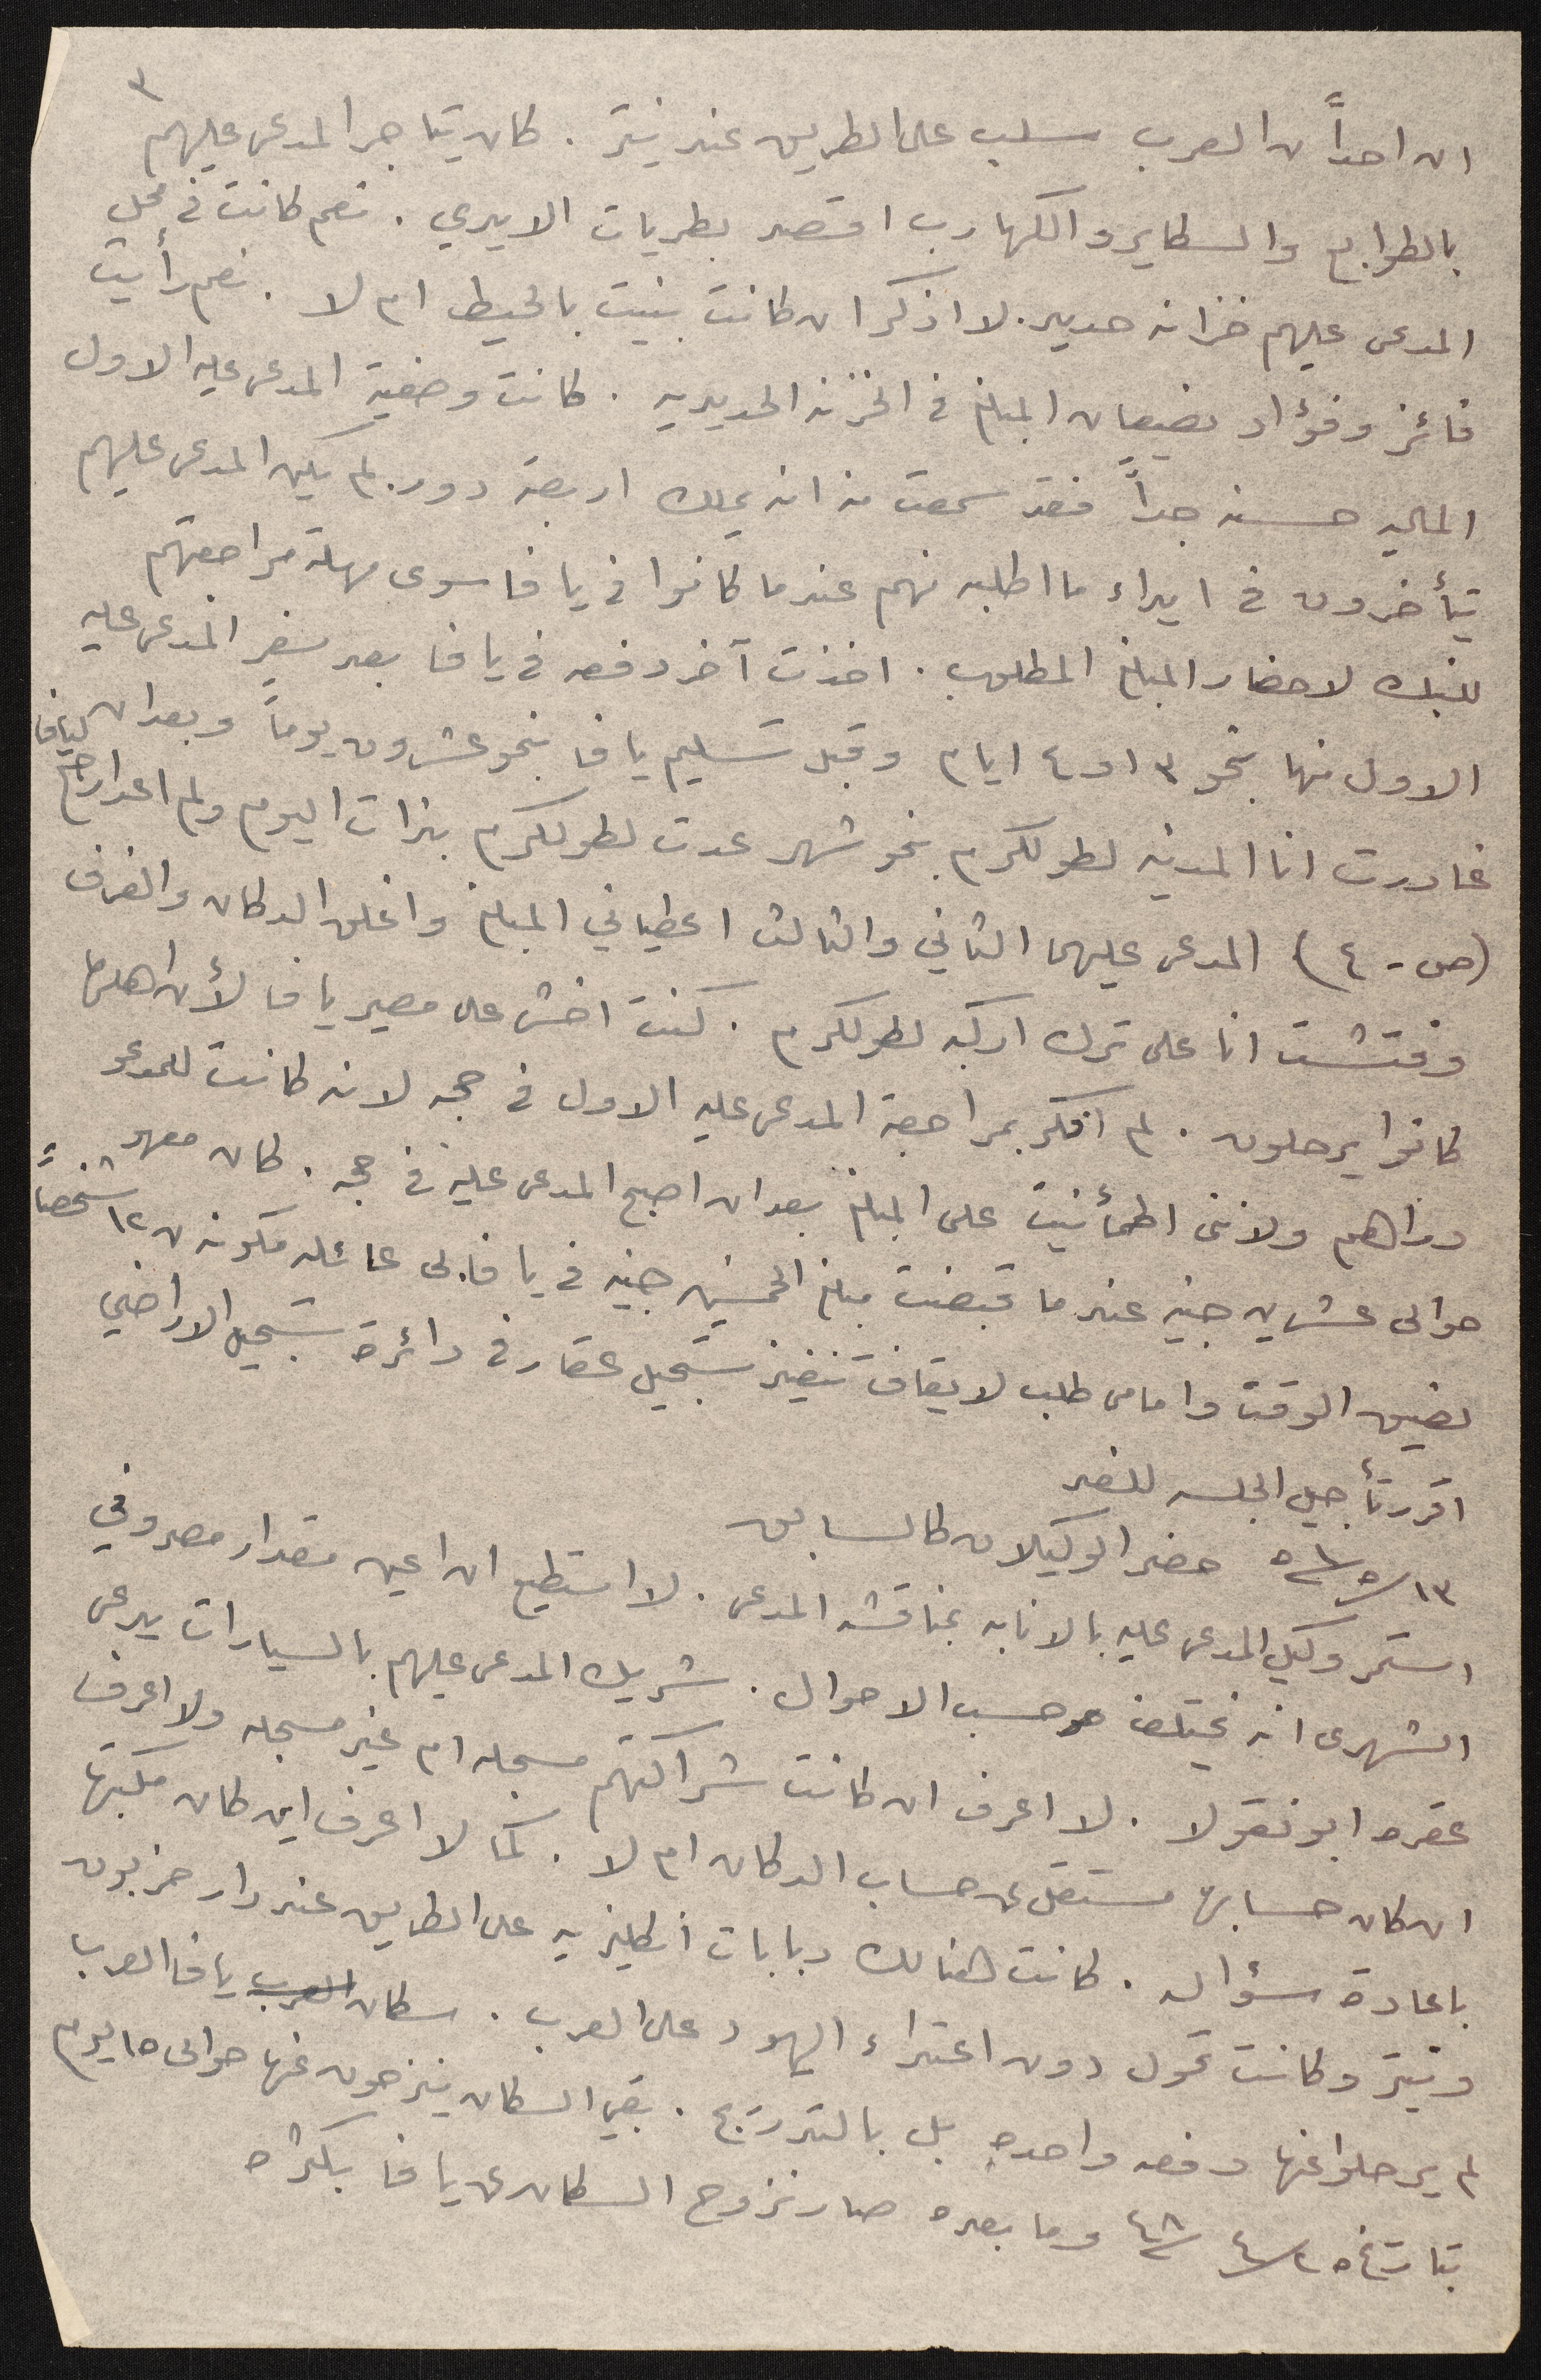 ٣
ان احداً من العرب سلب على الطريق عند نيتر . كان يتاجر المدعى عليهم
بالطوابع والسكاير والكهارب اقصد بطريات الايدي . نعم كانت في محل
المدعى عليهم خزانه حديد . لا اذكر ان كانت بنيت بالحيط ام لا . نعم رأيت
فائز وفؤاد يضيعان المبلغ في الخزنه الحديديه . كانت وضعية المدعى عليه الاول
الماليه حسنه جداً فقد سمعت منه انه يملك اربعة دور . لم يكن المدعى عليهم
يتأخرون في ايداء ما اطلبه منهم عندما كانوا في يافا سوى مهلة مراجعتهم
للبنك لاحضار المبلغ المطلوب . اخذت آخر دفعه في يافا بعد سفر المدعى عليه
الاول منها بنحو ٣ او ٤ ايام وقبل تسليم يافا بنحو عشرون يوماً وبعد ان
غادرت انا المدينه لطولكرم بنحو شهر عدت لطولكرم بذات اليوم ولم اعد ارجع ليافا
(ص - ٤) المدعى عليهما الثاني والثالث اعطياني المبلغ واغلق الدكان والغرف
وفتشت انا على ترك اركبه لطولكرم . كنت اخشى على مصير يافا لأن اهلها
كانوا يرحلون . لم افكر بمراجعة المدعى عليه الاول في حجه لانه كانت للمدعو
دراهم ولانني اطمأنيت على المبلغ بعد ان اصبح المدعى عليه في حجه . كان معهم
حوالى عشرين جنيه عندما قبضت مبلغ الخمسين جنيه في يافا . لى عائله مكونه من ١٢ شخصاً
لضيق الوقت وامامى طلب لايقاف تنفيذ تسجيل عقار في دائرة تسجيل الاراضي
اقرر تأجيل الجلسه للغد
١٣/٥/٥١ حضر الوكيلان كالسابق
استمر وكيل المدعى عليه بالانابه بمناقشه المدعى . لا استطيع ان اعين مقدار مصروفي
الشهرى انه يختلف حسب الاحوال . شريك المدعى عليهم بالسيارات يدعى
عقره ابو نقولا . لا اعرف ان كانت شراكتهم مسجله ام غير مسجله ولا اعرف
ان كان حسابها مستقل عن حساب الدكان ام لا . كما لا اعرف اين كان مكتبها
باعادة سؤاله . كانت هنالك دبابات انكليزيه على الطريق عند دار حزبون
ونيتر وكانت تحول دون اعتداء اليهود على العرب . سكان العرب يافا العرب
لم يرحلوا عنها دفعه واحده بل بالتدريج . بقي السكان ينزحون عنها حوالى ١٥ يوم
بتاريخ ٢٥/٤/٤٨ وما بعده صار نزوح السكان عن يافا بكثره